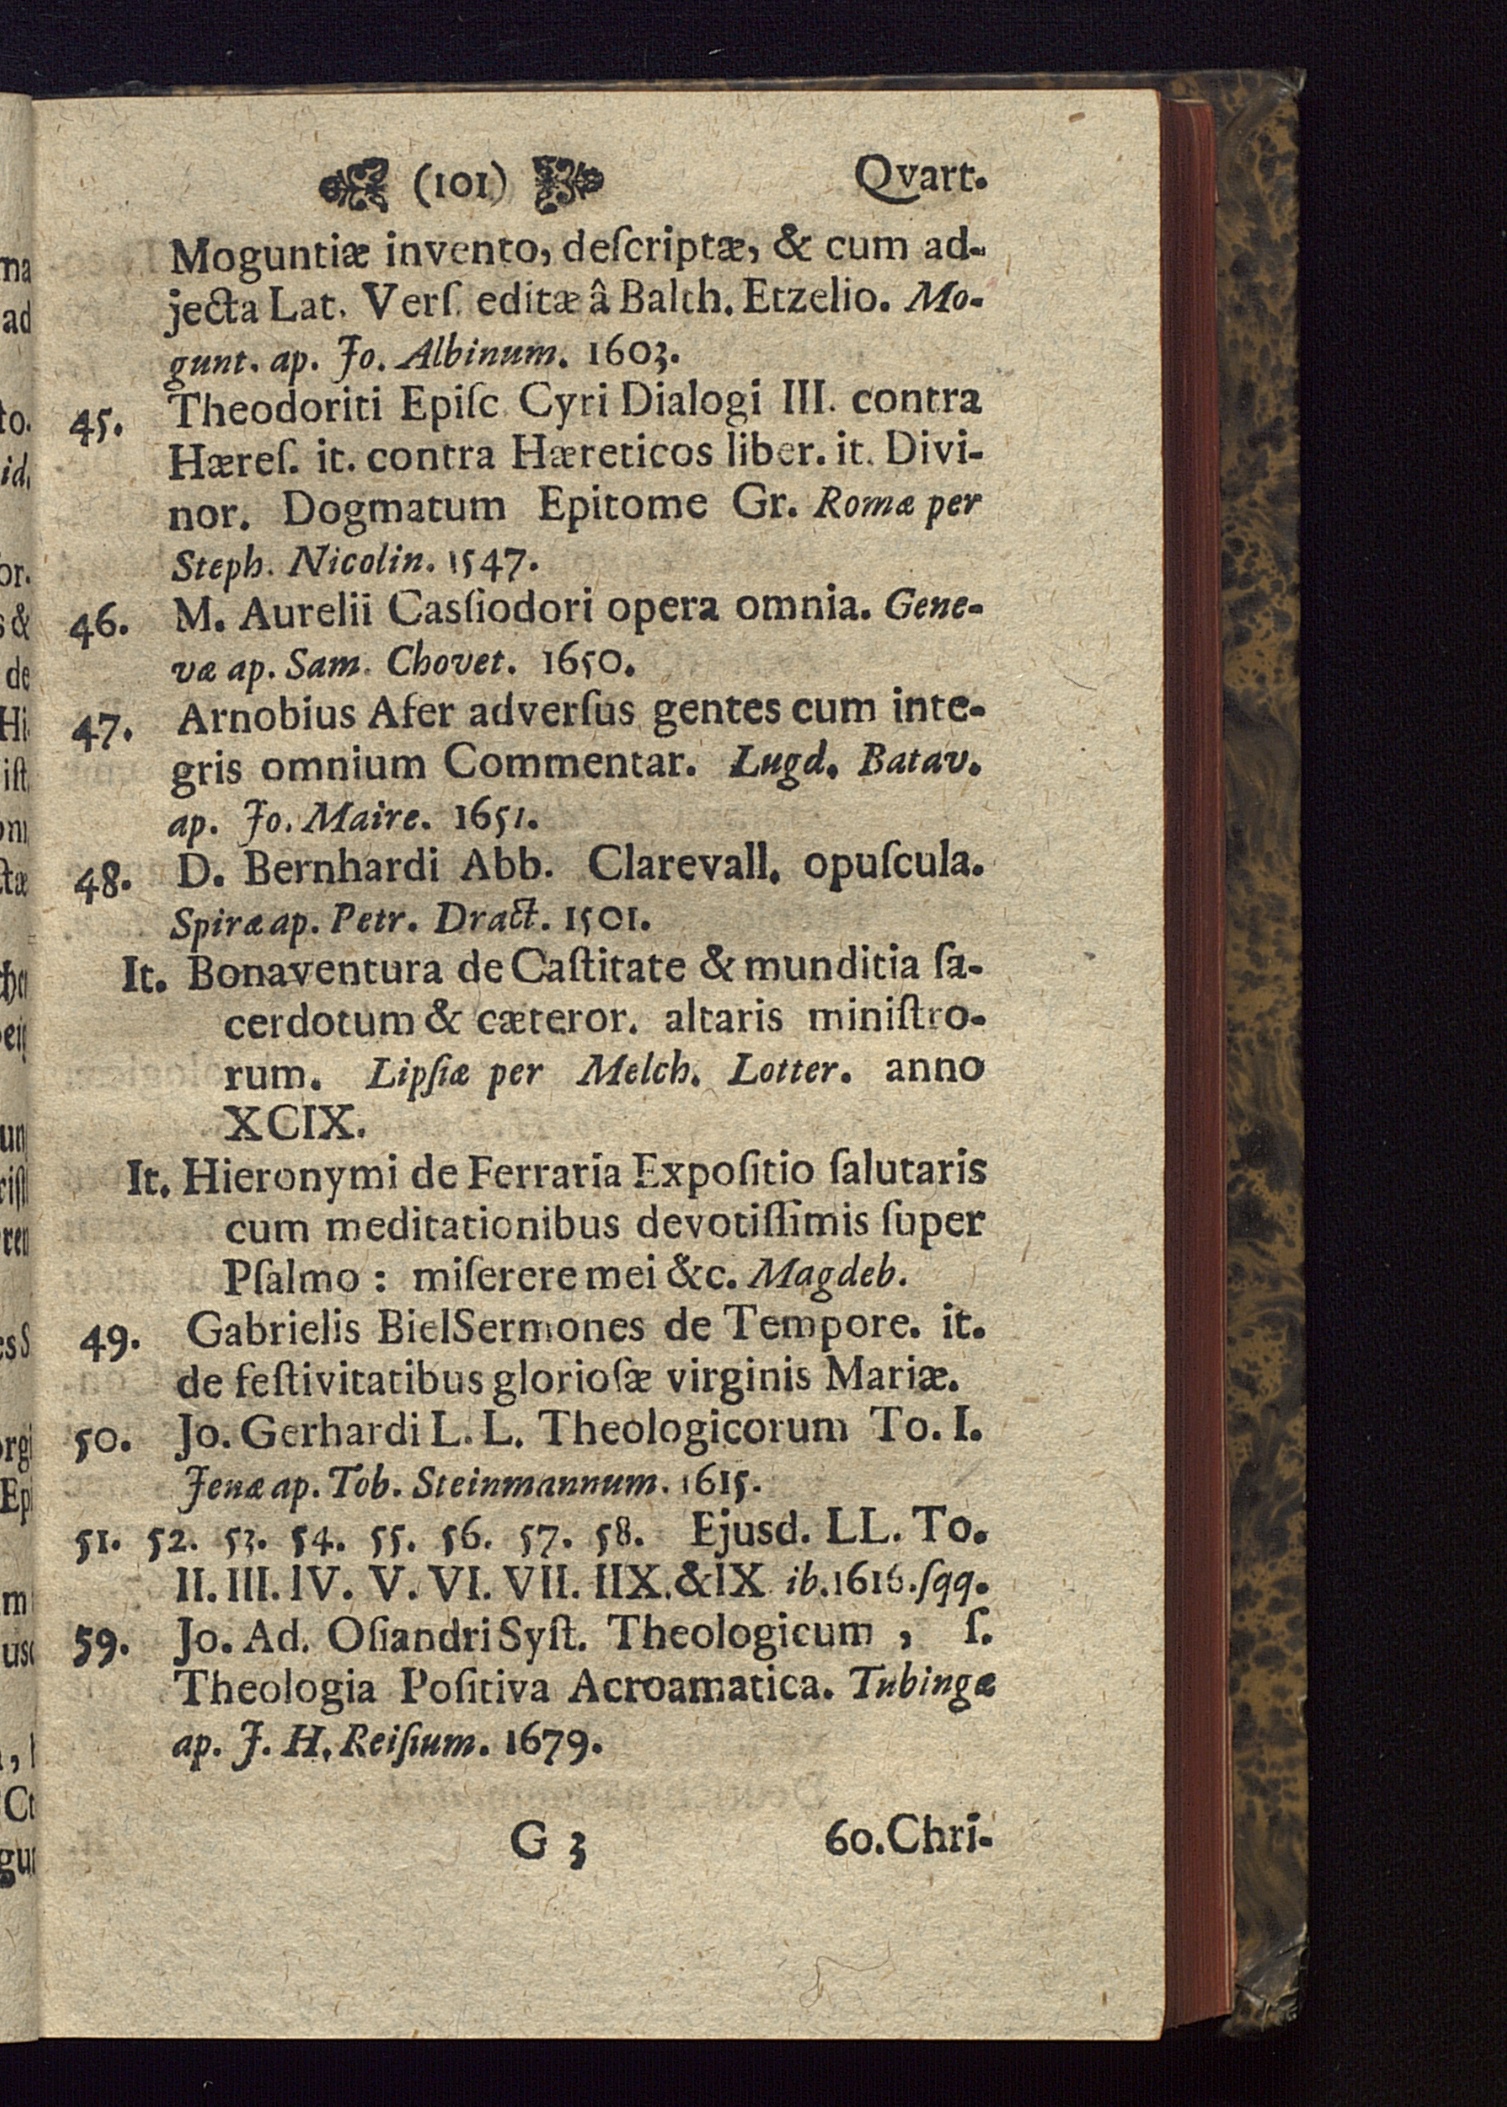 (101) Qvart.
Moguntiæ invento, deſcriptæ, & cum ad-
jecta Lat. Verſ. editæ â Balth. Etzelio. Mo-
gunt. ap. Jo. Albinum. 1603.
45. Theodoriti Epiſc. Cyri Dialogi III. contra
Hæreſ. it. contra Hæreticos liber. it. Divi-
nor. Dogmatum Epitome Gr. Romæ per
Steph. Nicolin. 1547.
46. M. Aurelii Casſiodori opera omnia. Gene-
væ ap. Sam. Chovet. 1650.
47. Arnobius Afer adverſus gentes cum inte-
gris omnium Commentar. Lugd. Batav.
ap. Jo. Maire. 1651.
48. D. Bernhardi Abb. Clarevall. opuſcula.
Spiræ ap. Petr. Dract. 1501.
It. Bonaventura de Caſtitate & munditia ſa-
cerdotum & cæteror. altaris miniſtro-
rum. Lipſiæ per Melch. Lotter. anno
XCIX.
It. Hieronymi de Ferraria Expoſitio ſalutaris
cum meditationibus devotiſſimis ſuper
Pſalmo: miſerere mei &c. Magdeb.
49. Gabrielis Biel Sermones de Tempore. it.
de feſtivitatibus glorioſæ virginis Mariæ.
50. Jo. Gerhardi L. L. Theologicorum To. I.
Jenæ ap. Tob. Steinmannum. 1615.
51. 52. 53. 54. 55. 56. 57. 58. Ejusd. LL. To.
II. III. IV. V. VI. VII. IIX. & IX ib. 1616. ſqq.
59. Jo. Ad. Oſiandri Syſt. Theologicum, ſ.
Theologia Poſitiva Acroamatica. Tubingæ
ap. J. H. Reiſium. 1679.
G 3 60. Chri-